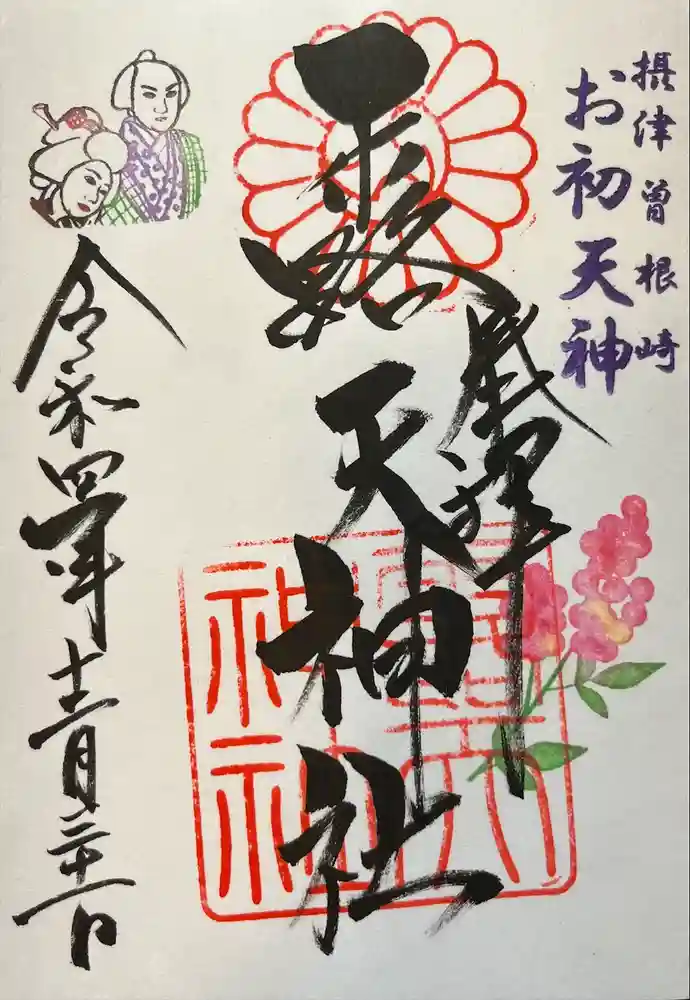 摂津曽根崎
お初天神
奉拝
露天神社
令和四年十二月三十一日